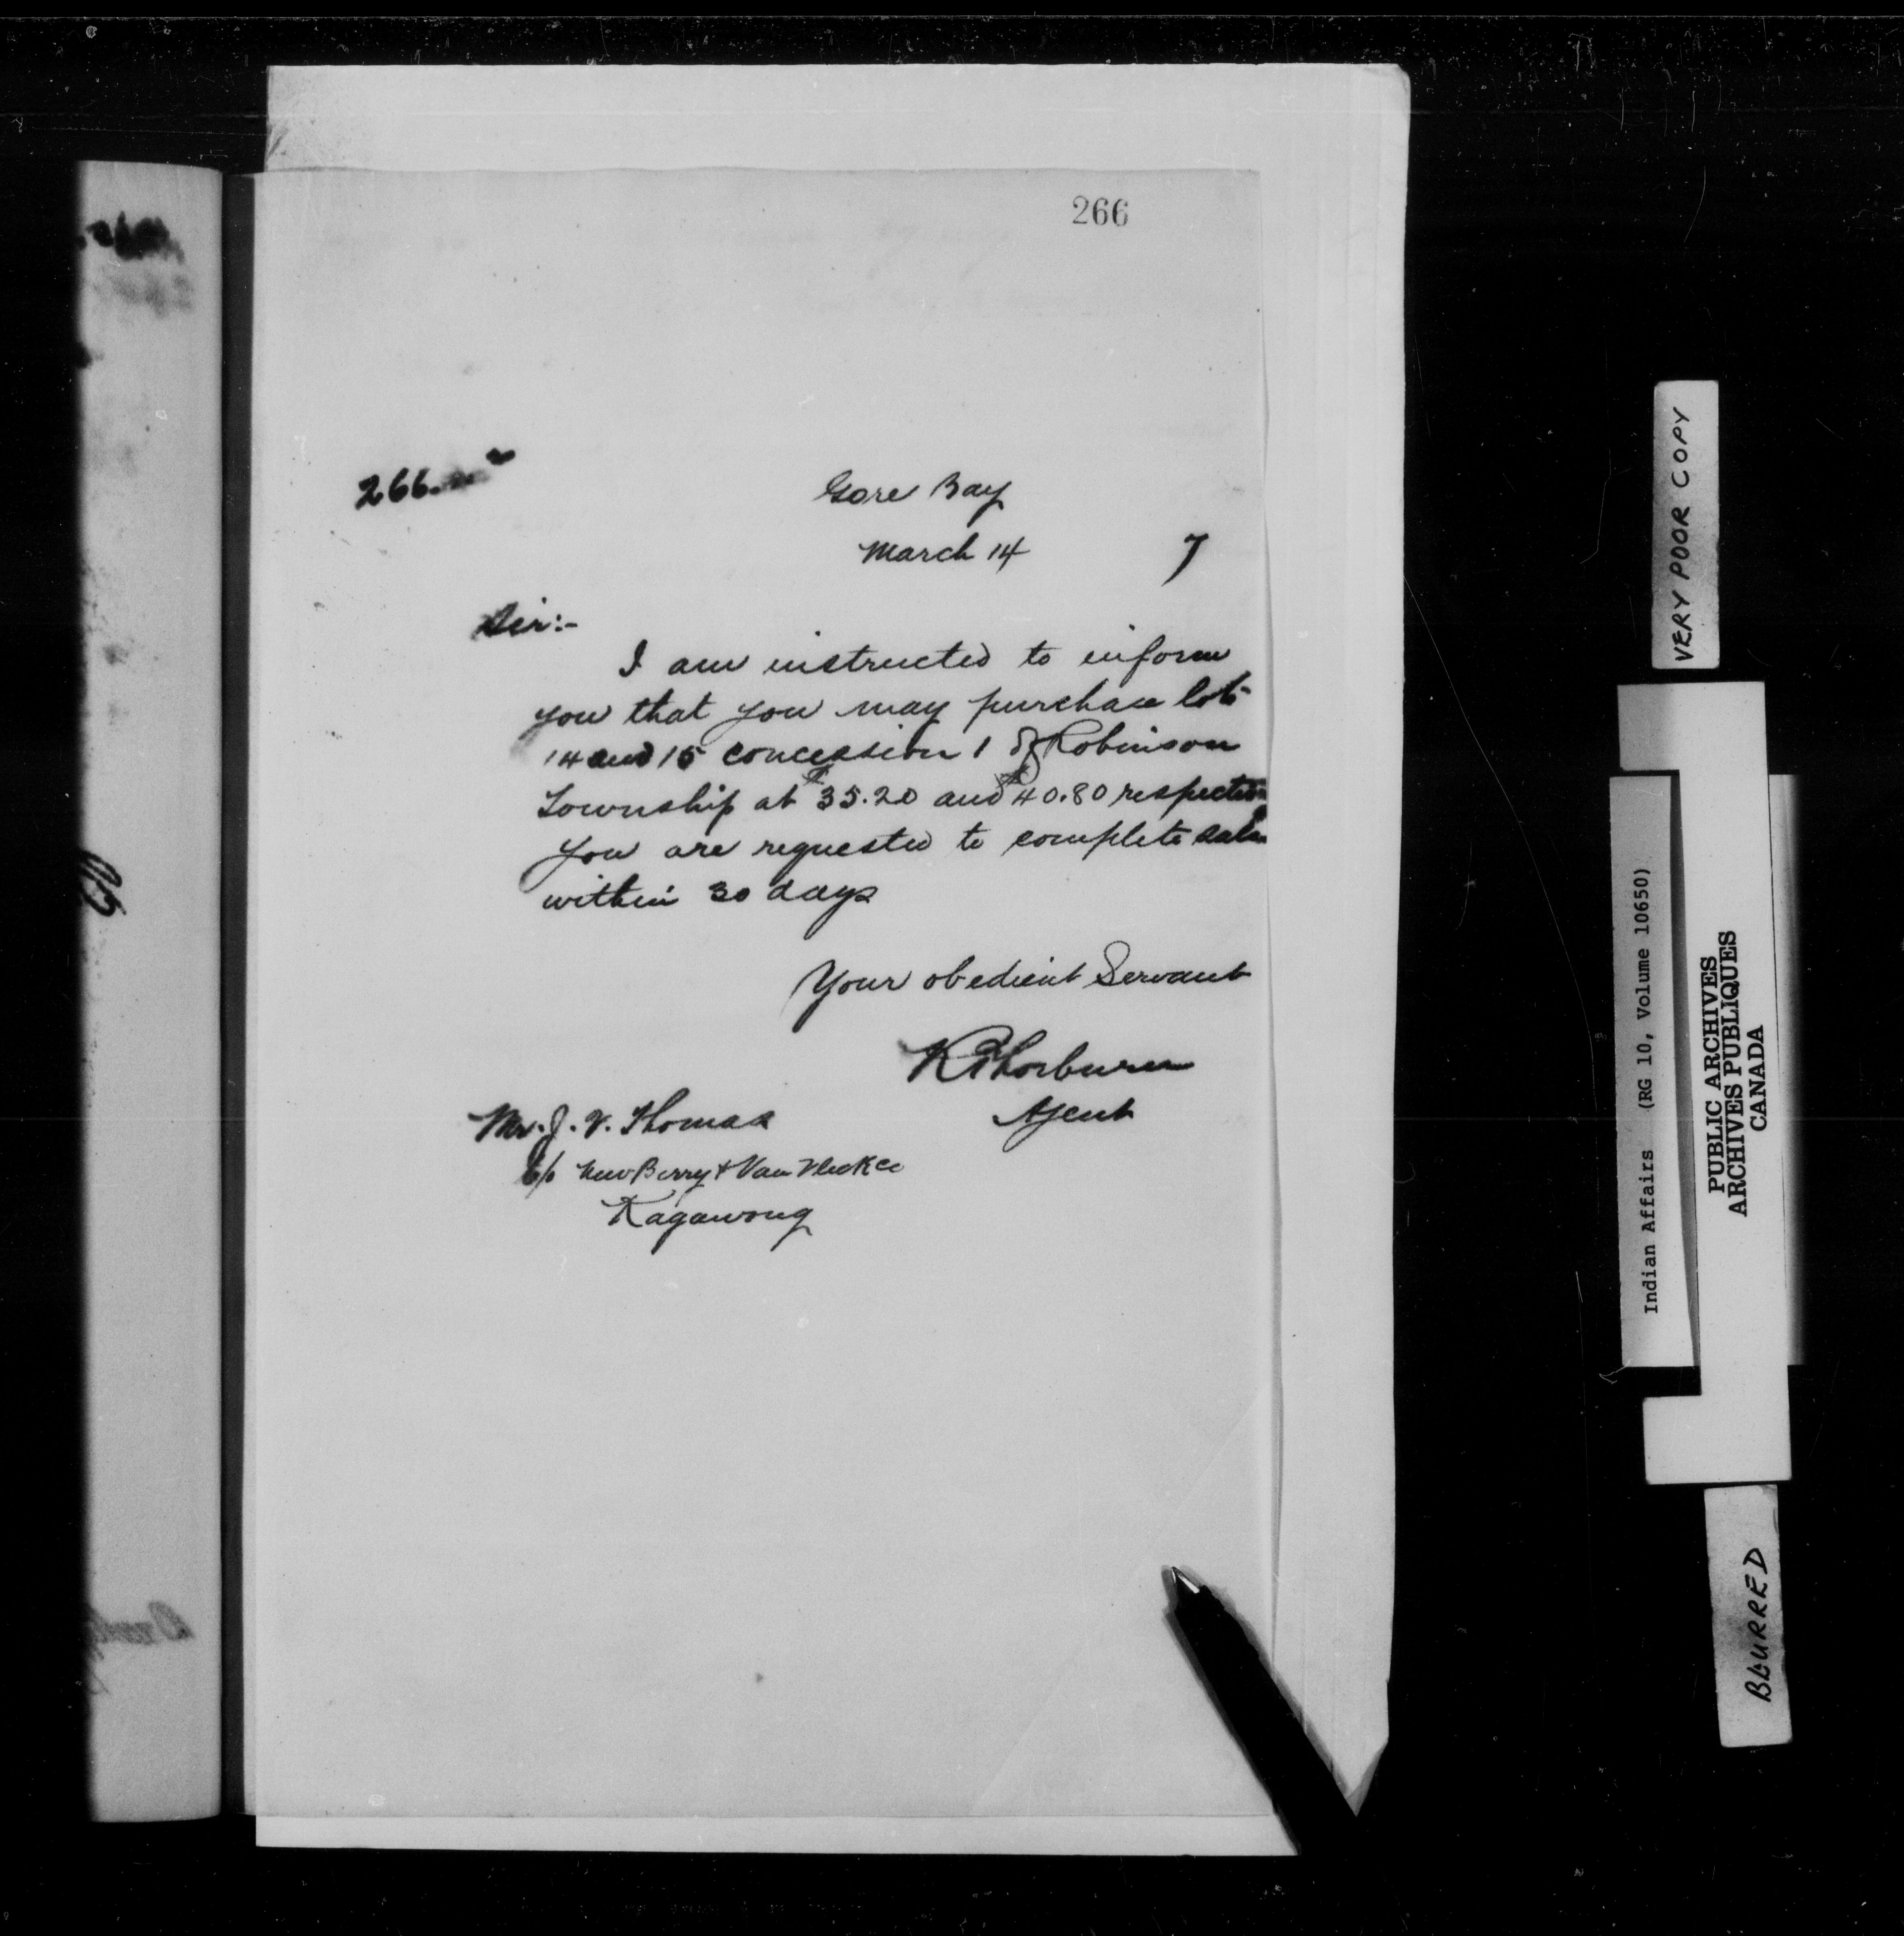 266
266.
Gore Bay
March 14 7
Sir:-
I am instructed to inform
you that you may purchase lots
14 and 15 concession 1 of Robinson
Township at $35.20 and $40.80
You are requested to complete sale
within 30 days
Your obedient Servant
R Thorburn
Agent
Mr. J. V. Thomas
c/o New Berry & Van Vleck Co
Kagawong
VERY POOR COPY
Indian Affairs (RG 10, Volume 10650)
PUBLIC ARCHIVES
ARCHIVES PUBLIQUES
CANADA
BLURRED